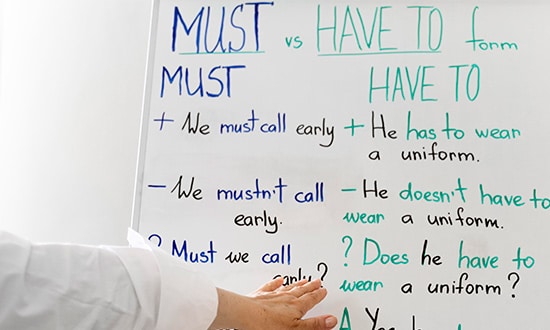 MUST vs HAVE TO form
MUST
+ We must call early
- We mustn't call
early.
? Must we call
early?
HAVE TO
+ He has to wear
a uniform.
- He doesn't have to
wear a uniform.
? Does he have to
wear a uniform?
A